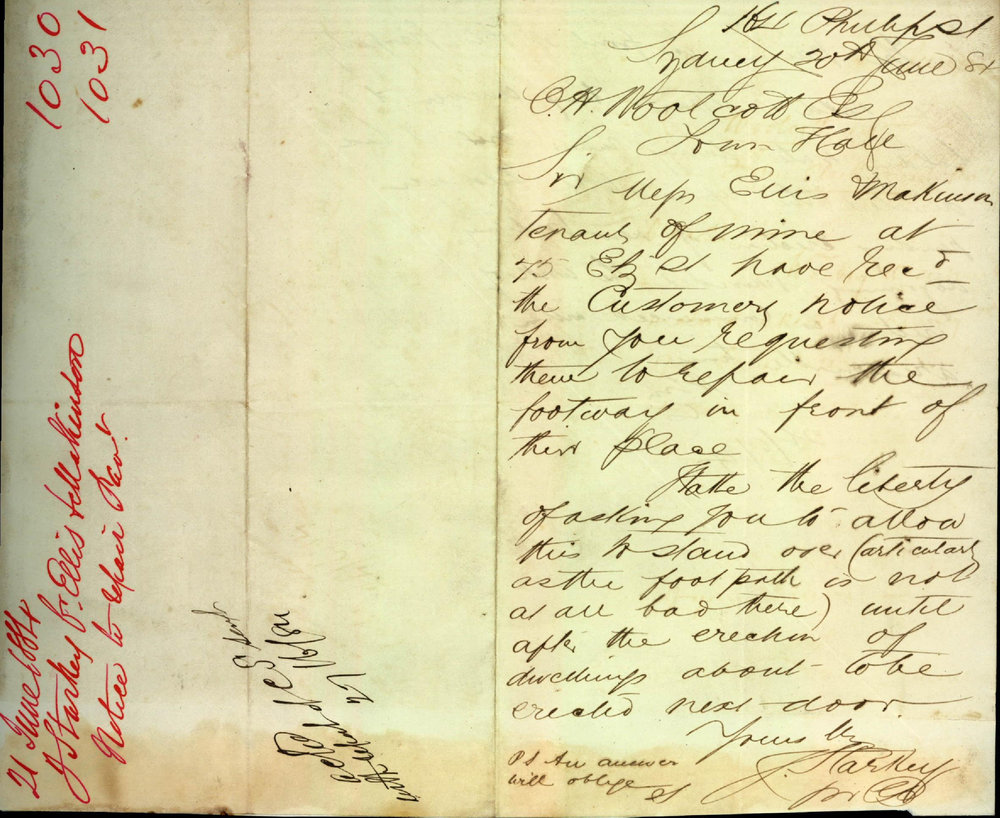 1030
1031
21 June 1884
J Starkey for Ellis & Makinson
Notice to repair Recd
27/6/84
164 Philip St
Sydney 20th June 84
C.H. Woolcott Esq
Town Hall
Sir Mess Ellis & Makinson
tenants of mine at
75 Elz St have Rec'd
the Customery notice
from you requesting
them to repair the
footway in front of
their place
I take the liberty
of asking you to allow
this to stand over (particularly
as the foot path is not
at all bad there) until
after the erection of
dwellings about to be
erected next door.
Yours
J. Starkey
PS An answer
will oblige